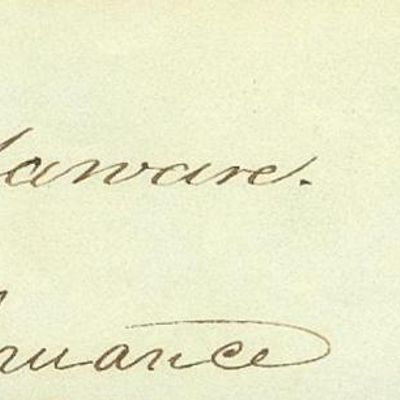 laware.
ruance